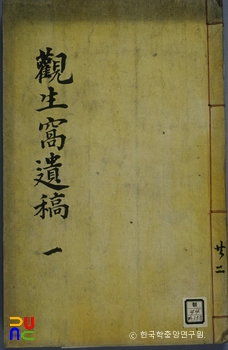 觀生窩遺稿 一
共二
© 한국학중앙연구원